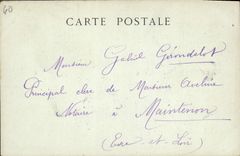 60
CARTE POSTALE
Monsieur Gabriel Girondelot
Principal clerc de Monsieur Aveline
Notaire à Maintenon
(Eure et Loir)